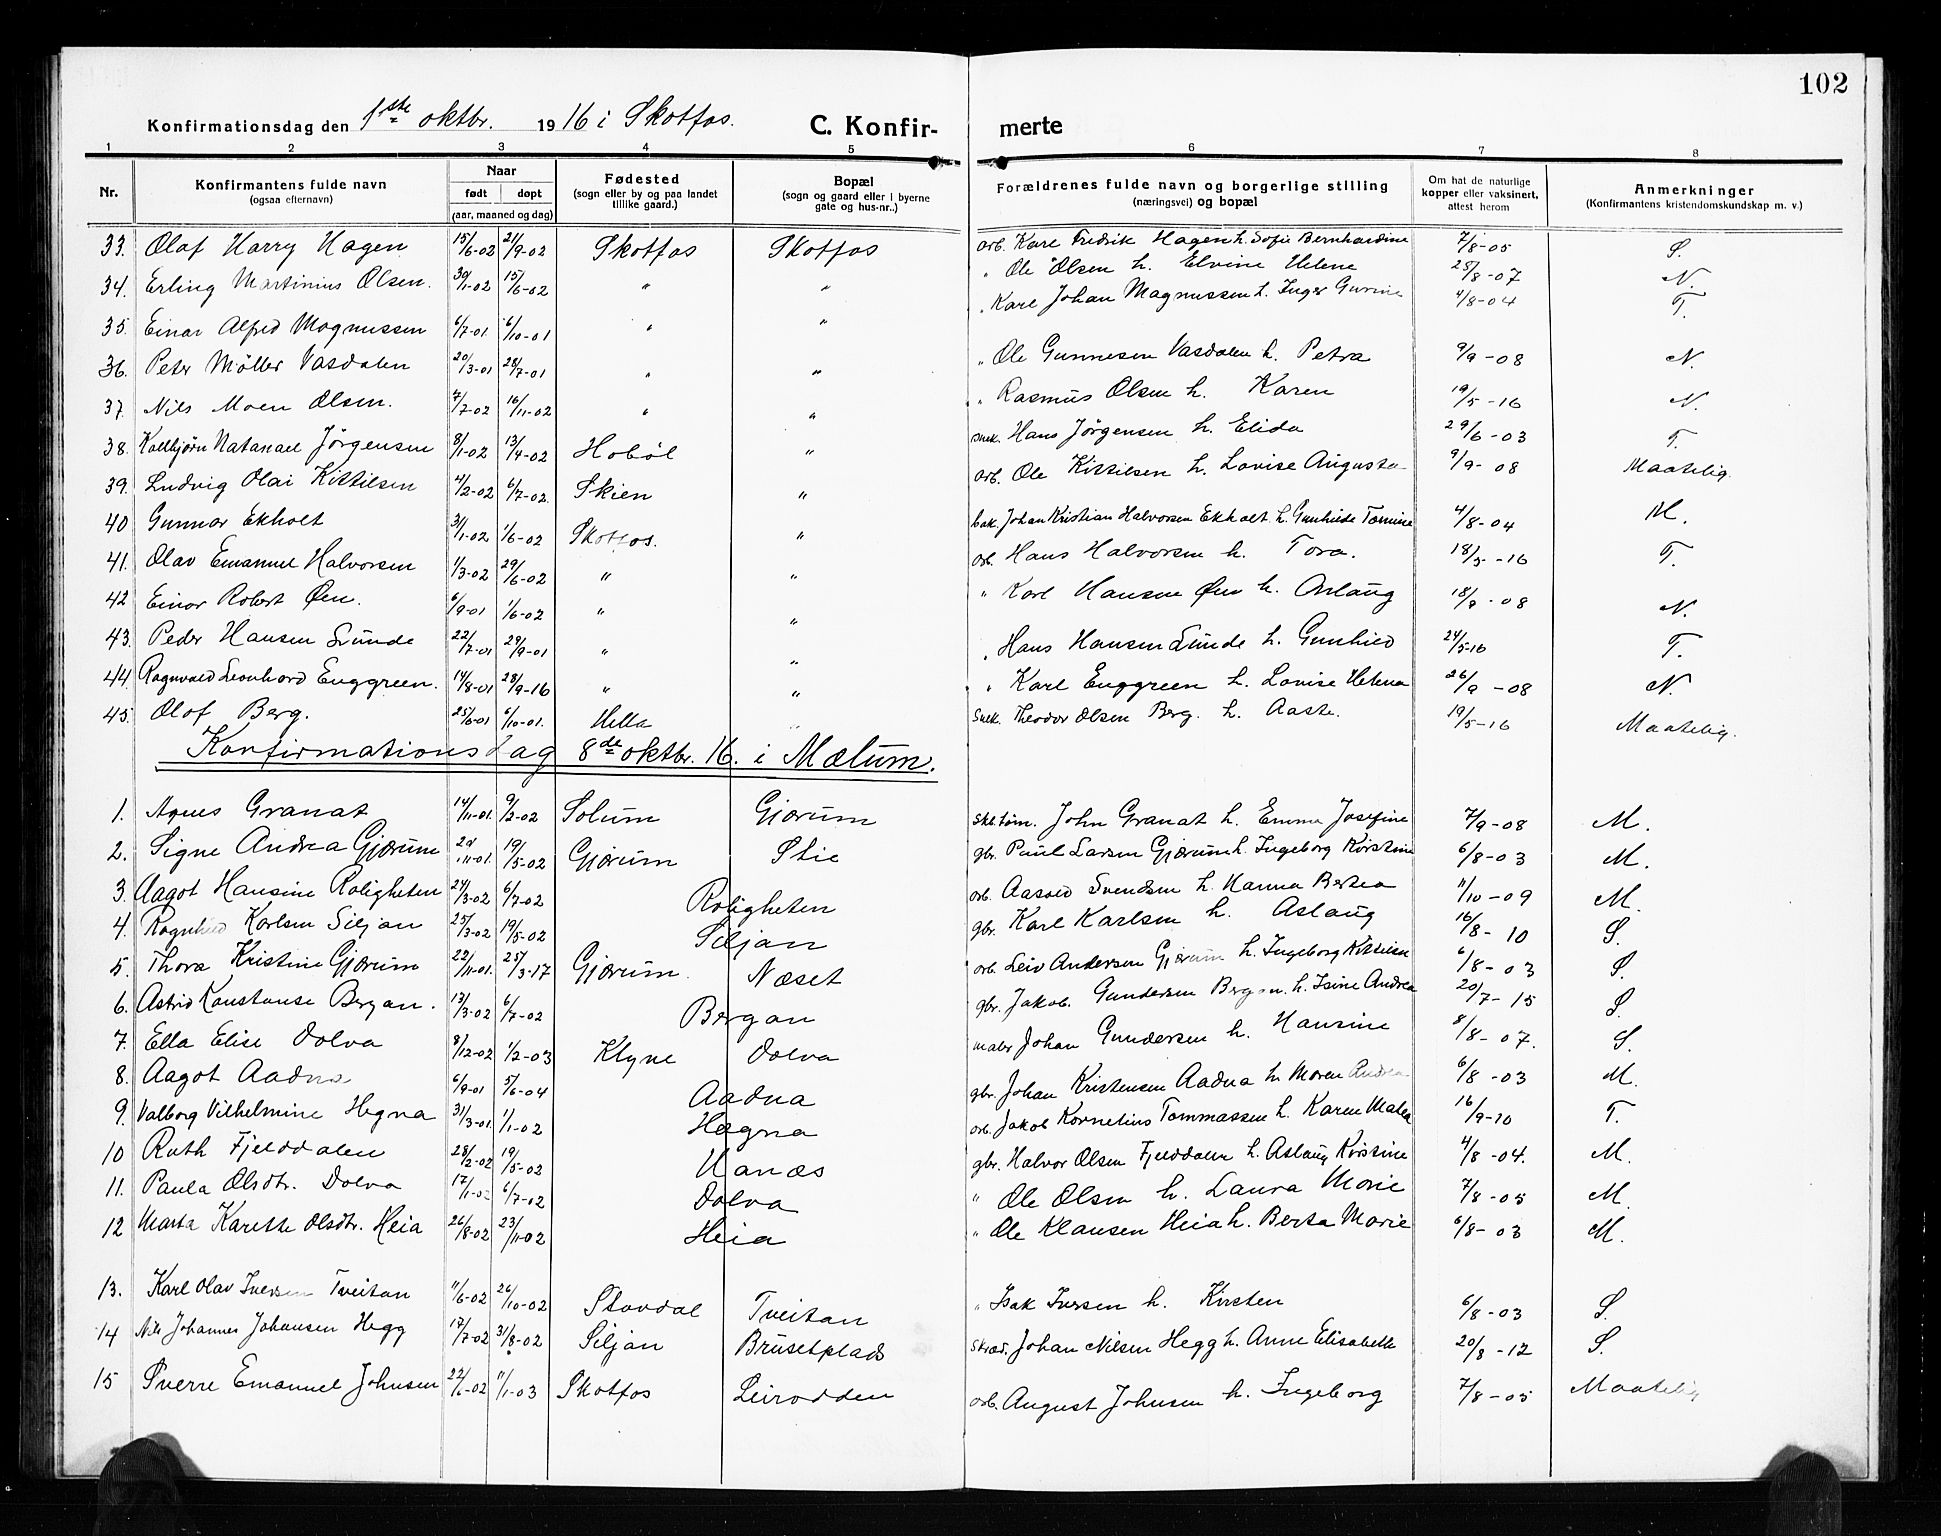 102
Konfirmationsdag den 1ste oktbr. 1916 i Skotfos. C. Konfirmerte
1 2 3 4 5 6 7 8
Nr. Konfirmantens fulde navn (ogsaa efternavn) Naar født døpt (aar, maaned og dag) Fødested (sogn eller by og paa landet tillike gaard.) Bopæl (sogn og gaard eller i byerne gate og hus-nr..) Forældrenes fulde navn og borgerlige stilling (næringsvei) og bopæl Om hat de naturlige kopper eller vaksinert, attest herom Anmerkninger (Konfirmantens kristendomskundskap m. v.)
33. Olaf Harry Hagen 15/6-02 21/9-02 Skotfos Skotfos arb. Karl Fredrik Hagen h. Sofie Bernhardine 7/8-05 S.
34. Erling Martinius Olsen. 30/1-02 15/6-02 " " " Ole Olsen h. Elvine Helene 25/8-07 N.
35. Einar Alfred Magnussen 6/7-01 6/10-01 " " " Karl Johan Magnussen h. Inger Gurine 4/8-04 T.
36. Peter Møller Vasdalen 20/3-01 28/7-01 " " " Ole Gunnesen Vasdalen h. Petra 9/9-08 N.
37. Nils Moen Olsen. 7/7-02 16/11-02 " " " Rasmus Olsen h. Karen 19/5-16 N.
38. Kolbjørn Natanael Jörgensen 8/1-02 13/4-02 Hobøl " snek. Hans Jörgensen h. Elida 29/6-03 T.
39. Ludvig Olai Kittilsen 4/2-02 6/7-02. Skien " arb. Ole Kittilsen h. Lovise Augusta 9/9-08 Maatelig.
40 Gunnar Ekholt 31/1-02 1/6-02 Skotfos. " bak. Johan Kristian Halvorsen Ekholt h. Gunhilde Tomine 4/8-04 M.
41. Olav Emanuel Halvorsen 1/3-02 29/6-02 " " arb. Hans Halvorsen h. Tora. 18/5-16 T.
42 Einar Robert Øen. 6/9-01 1/6-02 " " " Karl Hansen Øen h. Aslaug 18/9-08 N.
43. Peder Hansen Lunde 22/7-01 29/9-01 " " " Hans Hansen Lunde h. Gunhild 24/5-16 T.
44. Ragnvald Leonhard Enggreen. 14/8-01 28/9-16 " " " Karl Enggreen h. Lovise Helena 26/9-08 N.
45. Olaf Berg. 25/6-01 6/10-01. Hella " Snek. Theodor Olsen Berg. h. Aaste. 19/5-16 Maatelig.
Konfirmationsdag 8de oktbr. 16. i Mælum.
1. Agnes Granat 14/11-01. 9/2-02 Solum Gjærum skb.tøm. John Granat h. Emma Josefine 7/9-08 M.
2. Signe Andrea Gjærum 11-01. 19/5-02 Gjærum Stie gbr. Paul Larsen Gjærum h. Ingeborg Kirstine 6/8-03 M.
3. Aagot Hansine Roligheten 24/3-02 6/7-02 Roligheten arb. Aasold Svendsen h. Hanna Bertea 11/10-09 M.
4. Ragnhild Karlsen Siljan 25/3-02 19/5-02 Siljan gbr. Karl Karlsen h. Aslaug 16/8-10 S.
5. Thora Kristine Gjærum 22/11-01. 25/3-17 Gjærum. Næset arb. Leiv Andersen Gjærum h. Ingeborg Kittilsen 6/8-03 S.
6. Astrid Konstanse Bergan. 13/3-02 6/7-02 Bergan gbr. Jakob Gundersen Bergan. h. Isine Andrea 20/7-15 S.
7. Ella Elise Dolva 8/12-02 1/2-03 Klyne Dolva maler Johan Gundersen h. Hansine 8/8-07. S.
8. Aagot Aadna 6/9-01 5/6-04 Aadna gbr. Johan Kristensen Aadna h. Maren Andrea 6/8-03 M.
9. Valborg Vilhelmine Hegna 31/3-01. 1/1-02 Hegna arb. Jakob Kornelius Tommassen h. Karen Matea 16/9-10 T.
10 Ruth Fjelddalen 28/2-02 19/5-02 Hanæs gbr. Halvor Olsen Fjelddalen h. Aslaug Kirstine 4/8-04. M.
11. Paula Olsdtr. Dolva 17/1-02 6/7-02 Dolva " Ole Olsen h. Laura Marie 7/8-05 M.
12 Marta Karette Olsdtr. Heia 26/8-02 23/11-02 Heia " Ole Klausen Heia h. Berta Marie 6/8-03 M.
13. Karl Olav Iversen Tveitan 11/6-02 26/10-02 Slevdal Tveitan " Isak Iversen h. Kirsten 6/8-03 S.
14 Nils Johannes Johansen Hegg 17/7-02 31/8-02 Siljan Brusetplads skræd. Johan Nilsen Hegg h. Anne Elisabeth 20/8-12 S.
15 Sverre Emanuel Johnsen 22/6-02 11/1-03 Skotfos Leirodden arb. August Johnsen h. Ingeborg 7/8-05 Maatelig